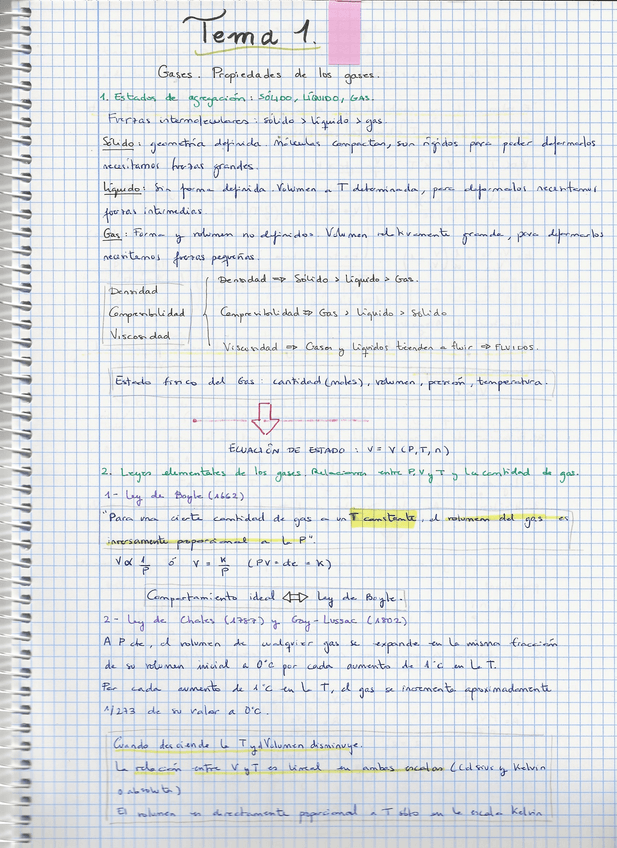 Tema 1.
Gases. Propiedades de los gases.
1. Estados de agregación: SÓLIDO, LÍQUIDO, GAS.
Fuerzas intermoleculares: sólido > líquido > gas
Sólido: geometría definida. Móleculas compactas, son rígidos para poder deformarlos
necesitamos fuerzas grandes.
Líquido: Sin forma definida. Volumen a T determinada, para deformarlos necesitamos
fuerzas intermedias
Gas: Forma y volumen no definidos. Volumen relativamente grande, para deformarlos
necesitamos fuerzas pequeñas.
Densidad ⇒ Sólido > Líquido > Gas.
Densidad
Compresibilidad
Compresibilidad ⇒ Gas > Líquido > Sólido
Viscosidad
Viscosidad ⇒ Gases y Líquidos tienden a fluir ⇒ FLUIDOS.
Estado físico del Gas: cantidad (moles), volumen, presión, temperatura.
ECUACIÓN DE ESTADO: V = V (P, T, n)
2. Leyes elementales de los gases. Relaciones entre P, V y T y la cantidad de gas.
1- Ley de Boyle (1662)
"Para una cierta cantidad de gas a un T constante, el volumen del gas es
inversamente proporcional a la P".
V ∝ 1/P ó V = K/P (PV = cte = K)
Comportamiento ideal ⇔ Ley de Boyle.
2- Ley de Chales (1787) y Gay-Lussac (1802)
A P cte, el volumen de cualquier gas se expande en la misma fracción
de su volumen inicial a 0°C por cada aumento de 1°C en la T.
Por cada aumento de 1°C en la T, el gas se incrementa aproximadamente
1/273 de su valor a 0°C.
Cuando desciende la T y el Volumen disminuye.
La relación entre V y T es lineal en ambas escalas (Celsius y Kelvin
o absoluta)
El volumen es directamente proporcional a T sólo en la escala Kelvin